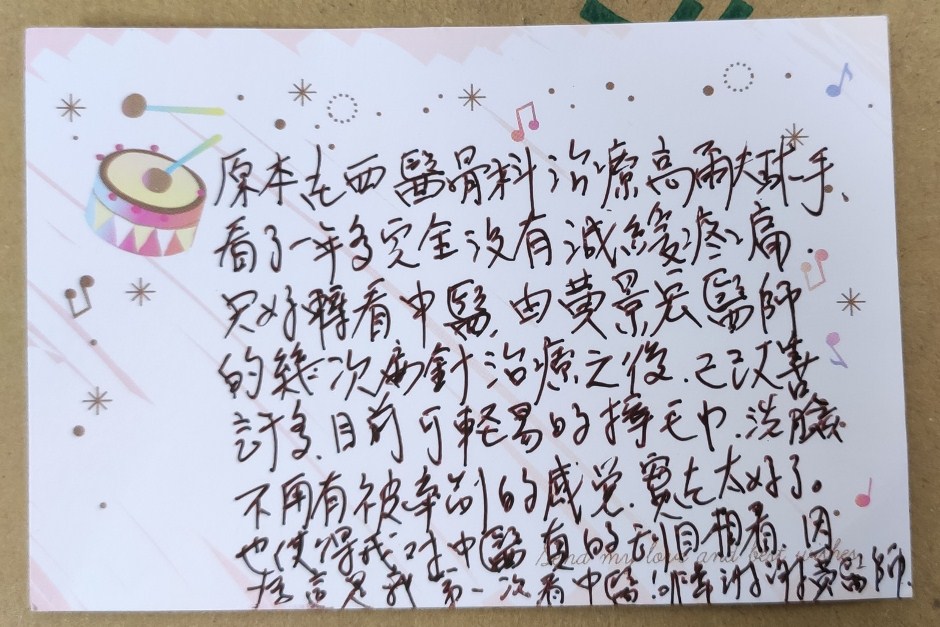 原本在西醫骨科治療高爾夫球手、
看了一年多完全沒有減緩疼痛.
只好轉看中醫.由黃景宏醫師
的幾次扁針治療之後.已改善
許多.目前可輕易的擰毛巾.洗臉
不用有被牽制的感覺.實在太好了。
也使得我對中醫真的刮目相看.因
Send my love and best wishes
這是我第一次看中醫.非常謝謝黃醫師.